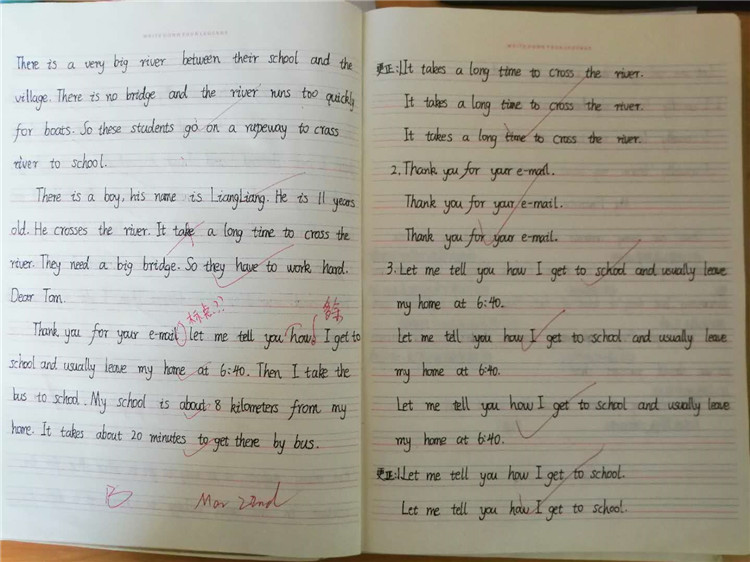 There is a very big river between their school and the
village. There is no bridge and the river runs too quickly
for boats. So these students go on a rupeway to crass
river to school.
There is a boy, his name is LiangLiang. He is 11 years
old. He crosses the river. It take a long time to cross the
river. They need a big bridge. So they have to work hard.
Dear Tom.
标点??
Thank you for your e-mail let me tell you how I get to
school and usually leave my home at 6:40. Then I take the
bus to school. My school is about 8 kilometers from my
home. It takes about 20 minutes to get there by bus.
B Mar 22nd
更正:1.It takes a long time to cross the river.
It takes a long time to cross the river.
It takes a long time to cross the river.
2. Thank you for your e-mail.
Thank you for your e-mail.
Thank you for your e-mail.
3. Let me tell you how I get to school and usually leave
my home at 6:40.
Let me tell you how I get to school and usually leave
my home at 6:40.
Let me tell you how I get to school and usually leave
my home at 6:40.
更正:1.Let me tell you how I get to school.
Let me tell you how I get to school.